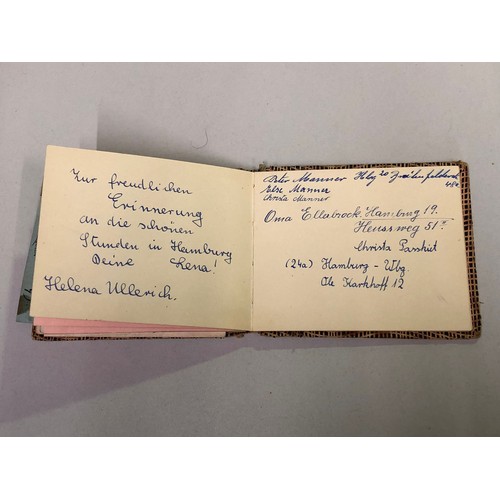 Zur freudlichen
Erinnerung
an die schönen
Stunden in Hamburg
Deine Lena!
Helena Ullerich.
Peter Manner Hbg 20
Else Manner
Christa Manner
Oma Ellabrock. Hamburg 19.
Heussweg 51
Christa Passhut
(24a) Hamburg - Wbg.
Karkhoff 12